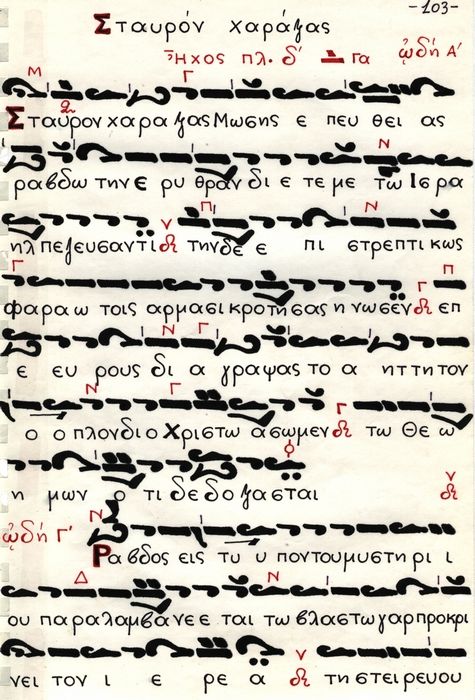 -103-
Σταυρόν χαράξας
Ἦχος πλ. δ΄ Γα ᾠδή Α΄
Σταυρον χαρα ξας Μωσης ε πευ θει ας
ραβδω την ε ρυ θραν δι ε τε με τω Ισρα
ηλ πεζευσαντι την δε ε πι στρεπτικως
φαραω τοις αρμασι κροτησας ηνωσεν επ
ε ευ ρους δι α γραψας το α ηττητον
ο οπλον διο Χριστω ασωμεν τω Θεω
η μων ο τι δε δο ξασται
ᾠδή Γ΄
Ραβδος εις τυ υ πον του μυστη ρι ι
ου παραλαμβανε ε ται τω βλαστω γαρ προκρι
νει τον ι ε ρε α τη στειρευου